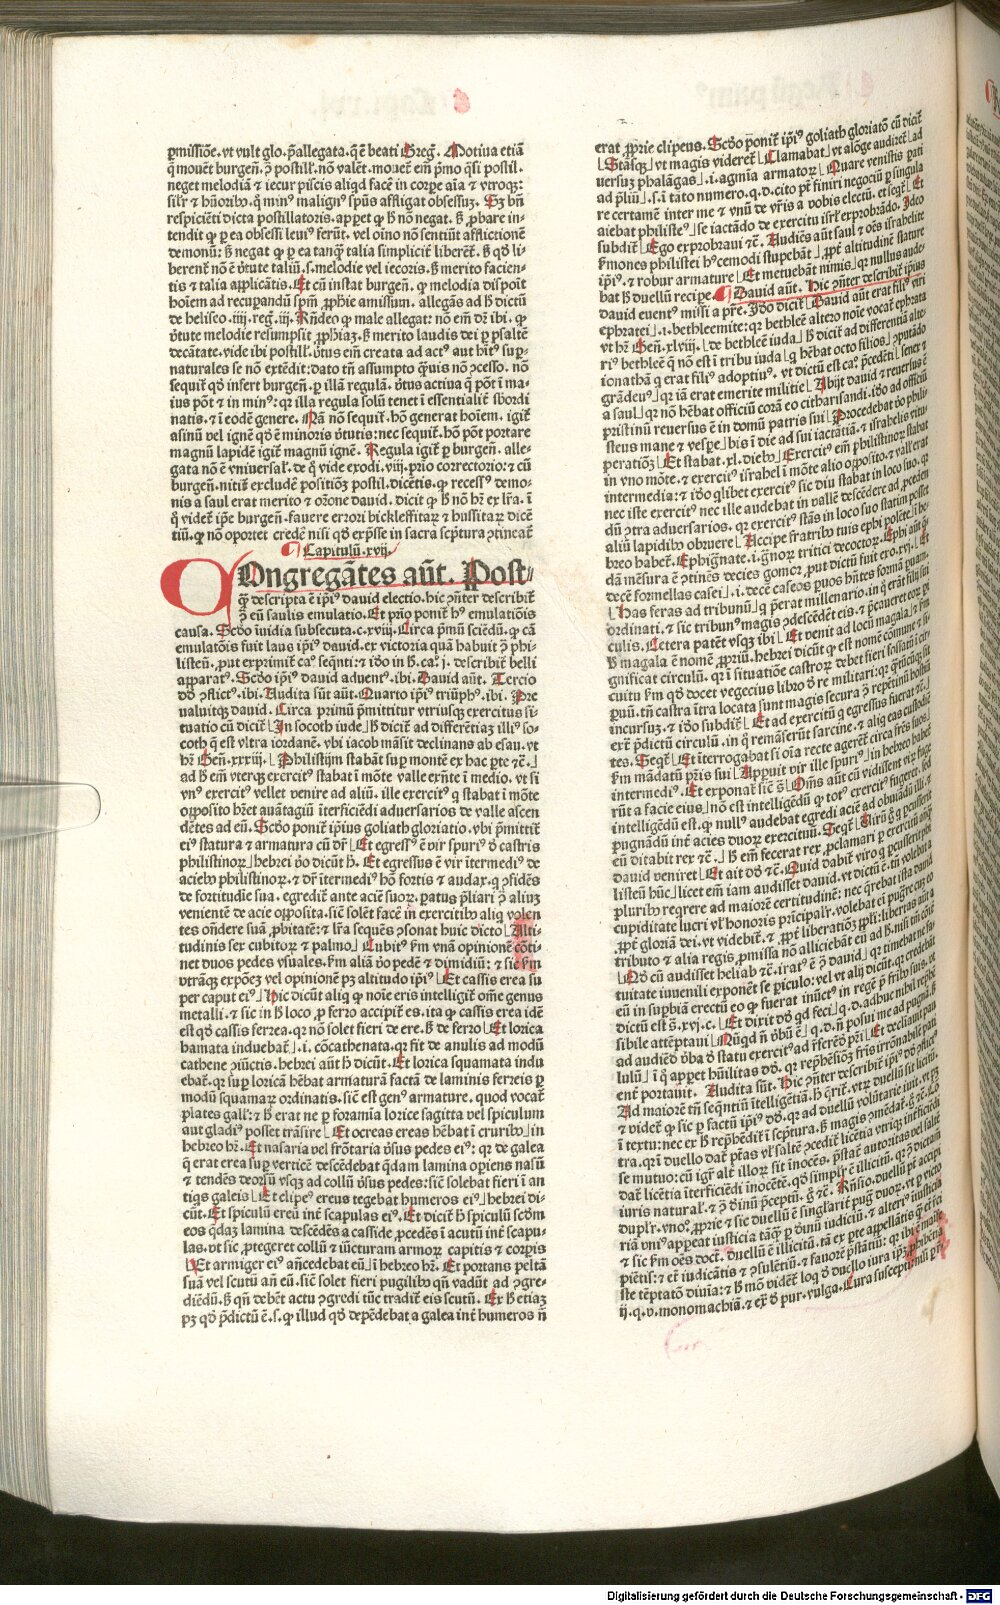 ꝑmissiōe. vt vult glo. p̄allegata. q̄ ē beati Greg᷒. Motiua etiā
q̄ mouēt burgeñ. ꝯ postill̄. nō valēt. mouet em̄ pͥmo qͥsi postil.
neget melodiā ⁊ iecur piscis aliqd facē in corꝑe aīa ⁊ vtroqꝫ:
respiciēti dicta postillatoris. appet ꝙ h̄ nō negat. sꝫ ꝓbare in-
tendit ꝙ ꝑ ea obsessi leuiꝰ ferūt. vel oīno nō sentiūt afflictionē
demonū: sꝫ negat ꝙ ꝑ ea tanqꝫ talia simpliciter liberēt. sꝫ qd li-
berent nō ē ꝟtute taliū. s. melodie vel iecoris. sꝫ merito facien-
tis ⁊ talia applicātis. Et cū instat burgeñ. ꝙ melodia dispoīt
hoīem ad recuperandū spm̄ ꝓphie amissum. allegās ad h̄ dictū
de heliseo .iiij. reg᷒. iij. Rn̄deo ꝙ male allegat: nō em̄ dr̄ ibi. ꝙ
ꝟtute melodie resumpsit ꝓphiaꝫ. sꝫ merito laudis dei ꝑ psaltē
decātate. vide ibi postill̄. ꝟtus em̄ creata ad actꝰ aut hītꝰ suꝑ-
naturales se nō extēdit: dato tn̄ assumpto qͣuis nō ꝯcesso. nō
sequit᷒ qd infert burgeñ. ꝑ illā regulā. ꝟtus actiua q̄ pōt ī ma-
ius pōt ⁊ in minꝰ: qꝛ illa regula solū tenet ī essentialiṫ sbordi
natis. ⁊ ī eodē genere. Nā nō sequit᷒. hō generat hoīem. igit᷒
asinū vel ignē qd ē minoris ꝟtutis: nec sequit᷒. hō pōt portare
magnū lapidē igit᷒ magnū ignē. Regula igit᷒ ꝑ burgeñ. alle-
gata nō ē vniuersal̄. de q̄ vide exodi .viij. pͥrio correctorio: ⁊ cū
burgeñ. nitit᷒ excludē positiōꝫ postil. dicētis. ꝙ recessꝰ demo-
nis a saul erat merito ⁊ orōne dauid. dicit ꝙ h̄ nō hr̄ ex lr̄a. ī
q̄ videt᷒ ip̄e burgeñ. fauere errori bickleffitaꝝ ⁊ hussitaꝝ dicē
tiū. ꝙ nō oportet credē nisi qd expͣsse in sacra scͥptura ꝯtineat᷒
Capitulū .xvij.
COngregātes aūt. Post-
qꝫ descripta ē ip̄iꝰ dauid electio. hic ꝯn̄ter describit᷒
ꝯ eū saulis emulatio. Et pͥrio ponit᷒ hꝰ emulatiōis
causa. Scd̄o inuidia subsecuta .c. xviij. Circa pͥmū sciēdū. ꝙ cā
emulatōis fuit laus ip̄iꝰ dauid. ex victoria quā habuit ꝯ phi-
listeū. ꝓut exprimit᷒ caͦ. seqn̄ti: ⁊ iō in h̄. caͦ. j. describit᷒ belli
apparatꝰ. Scd̄o ip̄iꝰ dauid aduentꝰ. ibi. Dauid aūt. Tercio
dō ꝯflictꝰ. ibi. Audita sūt aūt. Quarto ip̄iꝰ triūphꝰ. ibi. Pre
ualuitqꝫ dauid. Circa primū p̄mittitur vtriusqꝫ exercitus si-
tuatio cū dicit᷒ In socoth iude h̄ dicit᷒ ad differētiaꝫ illiꝰ so-
coth q̄ est vltra iordanē. vbi iacob māsit declinans ab esau. vt
hr̄ Geñ. xxxiij. Philistijm stabāt suꝑ montē ex hac ꝑte ⁊c̄.
ad h̄ em̄ vterqꝫ exercitꝰ stabat ī mōte valle exn̄te ī medio. vt si
vnꝰ exercitꝰ vellet venire ad aliū. ille exercitꝰ q̄ stabat ī mōte
opposito hr̄et auātagiū īterficiēdi aduersarios de valle ascen
dētes ad eū. Scd̄o ponit᷒ ip̄ius goliath gloriatio. vbi p̄mittit᷒
eiꝰ statura ⁊ armatura cū dr̄ Et egressꝰ ē vir spuriꝰ d̄ castris
philistinoꝝ hebrei ꝟo dicūt h̄. Et egressus ē vir ītermediꝰ de
aciebꝰ philistinoꝝ. ⁊ dr̄ ītermediꝰ hō fortis ⁊ audax. q̄ ꝯsidēs
de fortitudīe sua. egredit᷒ ante aciē suoꝝ. ꝑatus p̄liari ꝯ alinꝫ
venientē de acie opposita. sic̄ solēt facē in exercitibꝰ aliq̄ volen
tes oñdere suā ꝓbitatē: ⁊ lr̄a sequēs ꝯsonat huic dicto Alti-
tudinis sex cubitoꝝ ⁊ palmo Cubitꝰ scd̄m vnā opinionē cōti-
net duos pedes vsuales. scd̄m aliā ꝟo pedē ⁊ dimidiū: ⁊ sic scd̄m
vtrāqꝫ expōeꝫ vel opinionē pꝫ altitudo ip̄iꝰ Et cassis erea su
per caput eiꝰ Hic dicūt aliq̄ ꝙ noīe eris intelligit᷒ om̄e genus
metalli. ⁊ sic in h̄ loco ꝓ ferro accipit᷒ es. ita ꝙ cassis erea idē
est qd cassis ferrea. qꝛ nō solet fieri de ere. sꝫ de ferro Et lorica
hamata induebat᷒ .i. cōcathenata. qꝛ fit de anulis ad modū
cathene ꝯiūctis. hebrei aūt h̄ dicūt. Et lorica squamata indu
ebat᷒. qꝛ suꝑ loricā hēbat armaturā factā de laminis ferreis ꝑ
modū squamaꝝ ordinatis. sic̄ est genꝰ armature. quod vocat᷒
plates gall̄: ⁊ h̄ erat ne ꝑ foramīa lorice sagitta vel spiculum
aut gladiꝰ posset trāsire Et ocreas ereas hēbat ī cruribꝰ in
hebreo hr̄. Et nasaria vel frōtaria ꝟsus pedes eiꝰ: qꝛ de galea
q̄ erat erea suꝑ verticē descēdebat qͣdam lamina oꝑiens nasū
⁊ tendēs deorsū vsqꝫ ad collū ꝟsus pedes: sic̄ solebat fieri ī an
tiqͥs galeis Et clipeꝰ ereus tegebat humeros eiꝰ hebrei di-
cūt. Et spiculū ereū int᷒ scapulas eiꝰ. Et dicit᷒ h̄ spiculū scd̄m
eos qͣdaꝫ lamina descēdēs a casside ꝓcedēs ī acutū int᷒ scapu-
las. vt sic ꝓtegeret collū ⁊ iūcturam armoꝝ capitis ⁊ corꝑis
Et armiger eiꝰ an̄cedebat eū ī hebreo hr̄. Et portans peltā
suā vel scutū an̄ eū. sic̄ solet fieri pugilibꝰ qn̄ vadūt ad ꝯgre-
diēdū. sꝫ qn̄ debēt actu ꝯgredi tūc tradit᷒ eis scutū. Ex h̄ etiaꝫ
pꝫ qd p̄dictū ē. s. ꝙ illud qd depēdebat a galea int᷒ humeros n̄
erat ꝓprie clipeus. Scd̄o ponit᷒ ip̄iꝰ goliath gloriatō cū dicit᷒
Stāsqꝫ vt magis videret᷒ Clamabat vt a lōge audiret᷒ ad
versuꝫ phalāgas .i. agmīa armatoꝝ Quare venistis ꝑati
ad p̄liū .s. ī tāto numero. q. d. cito pōt finiri negociū ꝑ singula
re certamē inter me ⁊ vnū de vr̄is a vobis electū. et seqt᷒ Et
aiebat philisteꝰ se iactādo de exercitu isrl̄ exprobrādo. Ideo
subdit᷒ Ego exprobraui ⁊c̄. Audiēs aūt saul ⁊ oēs israhelite
sermones philistei hꝰcemodi stupebāt ꝓpt᷒ altitudinē stature
ip̄iꝰ. ⁊ robur armature Et metuebāt nimis qꝛ nullus aude-
bat h̄ duellū recipe. Dauid aūt. Hic ꝯn̄ter describit᷒ ip̄ius
dauid euentꝰ missi a pr̄e. Iō dicit᷒ Dauid aūt erat filiꝰ viri
ephratei .i. bethleemite: qꝛ bethleē altero noīe vocat᷒ ephrata
vt hr̄ Geñ. xlviij. de bethleē iuda h̄ dicit᷒ ad differentiā alte-
riꝰ bethleē q̄ nō est ī tribu iuda q̄ hēbat octo filios ꝯputādo
ionathā q̄ erat filiꝰ adoptiuꝰ. vt dictū est caͦ. p̄cedēti senex ⁊
grādeuꝰ qꝛ iā erat emerite militie Abijt dauid ⁊ reuersus ē
a saul qꝛ nō hēbat officiū corā eo citharisandi. iō ad officiū
pristinū reuersus ē in domū patris sui Procedebat ꝟo phili-
steus mane ⁊ veſꝑe bis ī die ad sui iactātiā. ⁊ israhelis vitu-
peratiōꝫ Et stabat .xl. diebꝰ Exercitꝰ em̄ philistinoꝝ stabat
in vno mōte. ⁊ exercitꝰ israhel ī mōte alio opposito. ⁊ vall᷒ erat
intermedia: ⁊ iō qͥlibet exercitꝰ sic diu stabat in loco suo. qꝛ
nec iste exercitꝰ nec ille audebat in vallē descēdere ad ꝓcedē
dū ꝯtra aduersarios. qꝛ exercitꝰ stās in loco suo statim posset
aliū lapidibꝰ obruere Accipe fratribꝰ tuis ephi polēte ī he-
breo habet᷒. Ephignate .i. ignoꝝ tritici decoctoꝝ. Ephi aūt q̄
dā mēsura ē ꝯtinēs decies gomor ꝓut dictū fuit exo. xvj. Et
decē formellas casei .i. decē caseos ꝑuos hn̄tes formā ꝑuam.
Has feras ad tribunū q̄ p̄erat millenario. in q̄ erāt filij sui
ordinati. ⁊ sic tribunꝰ magis ꝯdescēdēt eis. ⁊ p̄caueret eoꝝ ꝑi-
culis. Cetera patēt vsqꝫ ibi Et venit ad locū magala.
h̄ magala ē nomē ꝓpriū. hebrei dicūt ꝙ est nomē cōmune ⁊ si-
gnificat circulū. qꝛ ī situatiōe castroꝝ debet fieri fossatū ī cir-
cuitu scd̄m qd docet vegecius libro de re militari: qꝛ qͣntūcūqꝫ sit
ꝑuū. tn̄ castra ītra locata sunt magis secura ꝯ repētinū hostiū
incursuꝫ. ⁊ iō subdit᷒ Et ad exercitū q̄ egressus fuerat ⁊c̄
extͣ p̄dictū circulū. in q̄ remāserūt sarcine. ⁊ aliq̄ eas custodiē
tes. Seqt᷒ Et īterrogabat si oīa recte agerēt᷒ circa frēs suos
scd̄m mādatū pr̄is sui Apparuit vir ille spuriꝰ in hebreo habet᷒
intermediꝰ. Et exponat᷒ sic̄ s̄ Oms̄ aūt cū vidissent virꝫ fuge-
rūt a facie eius nō est intelligēdū ꝙ totꝰ exercitꝰ fugeret. sed
intelligēdū est. ꝙ nullꝰ audebat egredi aciē ad obuiādū illi. ⁊
pugnādū int᷒ acies duoꝝ exercituū. Seqt᷒ Virū ꝙ ꝑcusserit
eū ditabit rex ⁊c̄. h̄ em̄ fecerat rex ꝓclamari ꝑ exercitū anꝫ
dauid veniret Et ait dō ⁊c̄. Quid dabit᷒ viro q̄ ꝑcusserit phi
listeū hūc licet em̄ iam audisset dauid. vt dictū ē. tn̄ volebat a
pluribꝰ reqͥrere ad maiorē certitudinē: nec q̄rebat ista dauid
cupiditate lucri vl᷒ honoris pͥncipalr᷒. volebat eī pugͣre cum eo
ꝓpt᷒ gloriā dei. vt videbit᷒. ⁊ ꝓpt᷒ liberatiōꝫ ppl̄i: libertas aūt a
tributo ⁊ alia regis ꝓmissa nō alliciebāt eū ad h̄. nisi tm̄ cōit᷒
Qd cū audisset heliab ⁊c̄. iratꝰ ē ꝯ dauid qꝛ timebat ne fa-
tuitate iuuenili exponēt᷒ se ꝑiculo. vel vt alij dicūt. qꝛ credebat
eū in suꝑbiā erectū eo ꝙ fuerat inūctꝰ in regē ꝑ fribꝰ suis. vt
dictū est s̄. xvj. c. Et dixit dō qd feci q. d. adhuc nihil rephē-
sibile attēptani Nūqd n̄ ꝟbū ē q. d. n̄ posui me ad pugnā. sꝫ
ad audiēdū ꝟba de statu exercitꝰ ad īferēdū pr̄i Et declinauit pau
lulū ī q̄ apparet hūilitas dō. qꝛ rephēsiōꝫ fris irrōnabile pati
ent᷒ portauit. Audita sūt. Hic ꝯn̄ter describit᷒ ip̄iꝰ dō ꝯflictꝰ.
Ad maiorē tn̄ seqn̄tiū ītelligētiā. h̄ q̄rit᷒. vtꝝ duellū sit licitū.
⁊ videt᷒ ꝙ sic ꝑ factū ip̄iꝰ dō. qꝛ ad duellū volūtarie iuit. vt pꝫ
ī textu: nec ex h̄ rephēdit᷒ ī scͥptura. sꝫ magis ꝯmēdat᷒. g̊ ⁊c̄. Cō
tra. qꝛ ī duello dat᷒ ptās vl᷒ saltē ꝯcedit᷒ licētia vtriqꝫ interficiēdi
se mutuo: cū igr᷒ alt᷒ illoꝝ sit inocēs. pͣstat᷒ autoritas vel saltē
dat᷒ licētia īterficiēdi inocētē. qd simplr᷒ ē illicitū. qꝛ ꝯ dictam
iuris natural᷒. ⁊ ꝯ diuinū p̄ceptū. g̊ ⁊c̄. Rn̄sio. duellū pōt accipi
duplr᷒. vnoꝰ. ꝓprie ⁊ sic duellū ē singularis pugͣ duoꝝ. vt ꝑ victo
riā vniꝰ appareat iusticia tāqꝫ ꝑ diuinū iudiciū. ⁊ alteriꝰ iniusticia
⁊ sic scd̄m oēs doct᷒. duellū ē illicitū. tā ex ꝑte appellātis q̄ et reci
piētis: ⁊ et᷒ iudicātis ⁊ ꝯsulētiū. ⁊ fauorē p̄stātiū: qꝛ ibi ē manife
ste tēptatō diuina: ⁊ h̄ mō vident᷒ loq̄ d̄ duello iura ip̄m ꝓhibētia
ij. q. v. monomachiā. ⁊ exͣ d̄ pur. vulga. Cura susceptī
Digitalisierung gefördert durch die Deutsche Forschungsgemeinschaft - DFG